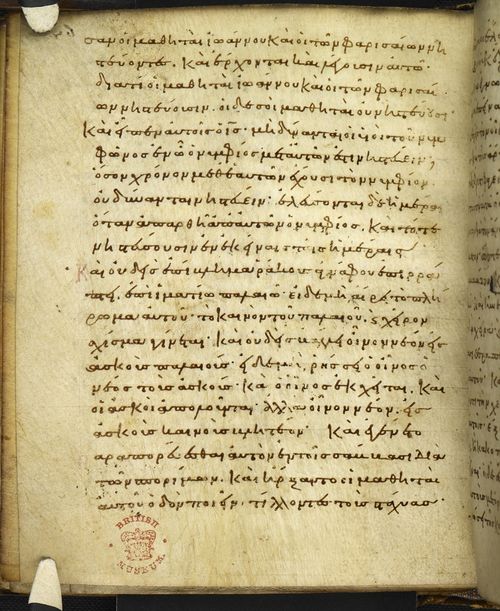 σαν οἱ μαθηται ἰωάννου και οἱ τῶν φαρισαίων νη
στεύοντες. Και ἔρχονται και λέγουσιν αὐτῶ·
διατί οἱ μαθηται ἰωάννου και οἱ τῶν φαρισαί
ων νηστεύουσιν. οἱ δε σοι μαθηται οὐ νηστεύουσι
Και εἶπεν αὐτοῖς ὁ ἰς· μὴ δύνανται οἱ υἱοι του νυμ
φῶνος ἐν ὧ ὁ νυμφίος μετ αὐτῶν ἐστιν νηστεύειν;
ὅσον χρόνον μεθ ἑαυτῶν ἔχουσι τον νυμφίον.
οὐ δύνανται νηστεύειν· ἐλεύσονται δε ἡμέραι
ὅταν ἀπαρθῆ ἀπ αὐτῶν ὁ νυμφίος. Και τότε
νηστεύσουσιν ἐν ἐκείναις ταῖς ἡμέραις
Και οὐδεις ἐπίβλημα ῥάκους ἀγνάφου ἐπιρρά
πτει ἐπι ἱματίω παλαιῶ· εἰ δε μὴ, αἴρει το πλή
ρωμα αὐτοῦ· το καινον του παλαιοῦ. και χεῖρον
σχίσμα γίνεται. Και οὐδεις βάλλει οἶνον νέον εἰς
ἀσκους παλαιούς· εἰ δε μὴ, ῥήσσει ὁ οἶνος ὁ
νέος τους ἀσκούς. Και ὁ οἶνος ἐκχεῖται. Και
οἱ ἀσκοι ἀπολοῦνται· ἀλλα οἶνον νέον εἰς
ἀσκους καινους βλητέον· Και ἐγένετο
παραπορεύεσθαι αὐτον ἐν τοῖς σάββασι δια
τῶν σπορίμων. Και ἤρξαντο οἱ μαθηται
αὐτοῦ ὁδον ποιεῖν τίλλοντες τους στάχυας·
BRITISH
MUSEUM